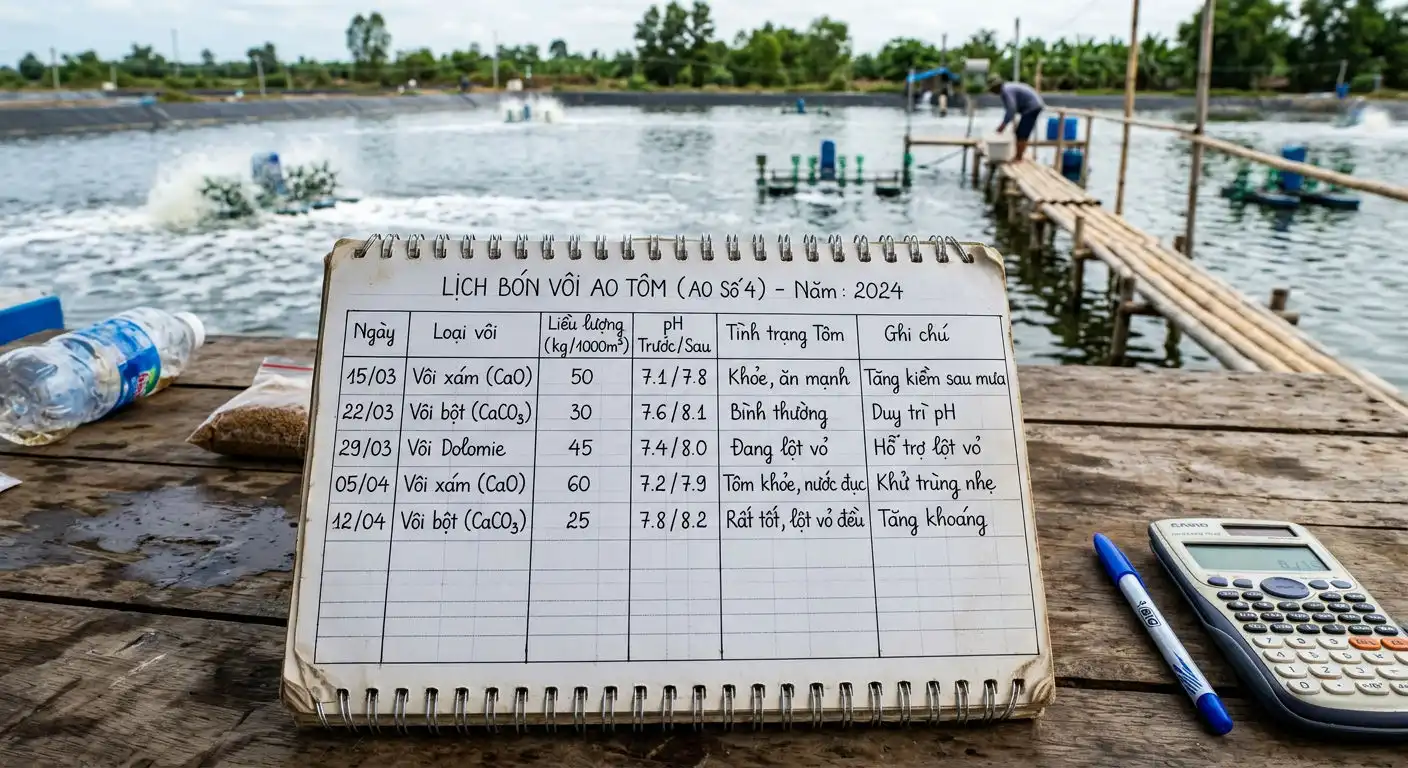 LỊCH BÓN VÔI AO TÔM (AO Số 4) - Năm: 2024
Ngày Loại vôi Liều lượng (kg/1000m³) pH Trước/Sau Tình trạng Tôm Ghi chú
15/03 Vôi xám (CaO) 50 7.1/7.8 Khỏe, ăn mạnh Tăng kiềm sau mưa
22/03 Vôi bột (CaCO₃) 30 7.6/8.1 Bình thường Duy trì pH
29/03 Vôi Dolomie 45 7.4/8.0 Đang lột vỏ Hỗ trợ lột vỏ
05/04 Vôi xám (CaO) 60 7.2/7.9 Tôm khỏe, nước đục Khử trùng nhẹ
12/04 Vôi bột (CaCO₃) 25 7.8/8.2 Rất tốt, lột vỏ đều Tăng khoáng
BIC
CASIO